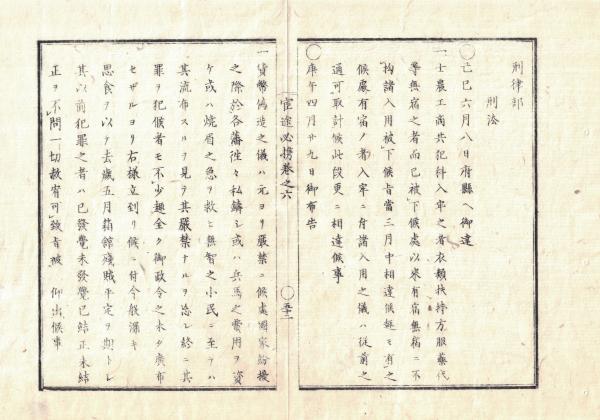 刑律部
刑法
◯己巳六月八日府縣ヘ御達
一士農工商共犯科入牢之者衣類扶持方服藥代
等無宿之者而已被下候處以來有宿無宿ニ不
拘諸入用被下候旨當三月中相達候趣モ有之
候處有宿ノ者入牢ニ付諸入用之儀ハ從前之
通可取計候此段更ニ相達候事
◯庚午四月廿九日御布告
宦途必携巻之六
◯五十二
一貨幣偽造之儀ハ元ヨリ嚴禁ニ候處國家紛擾
之際於各藩往々私鑄シ或ハ兵馬之費用ヲ資
ケ或ハ焼眉之急ヲ救ヒ無智之小民ニ至テハ
其流布スルヲ見テ其嚴禁ナルヲ忘レ終ニ其
罪ヲ犯候者モ不少趣全ク御政令之未タ廣布
セザルヨリ右様立到リ候ニ付今般深キ
思食ヲ以テ去歳五月箱館残賊平定ヲ期トシ
其以前犯罪之者ハ已發覺未發覺已結正未結
正ヲ不問一切赦宥可致旨被 仰出候事